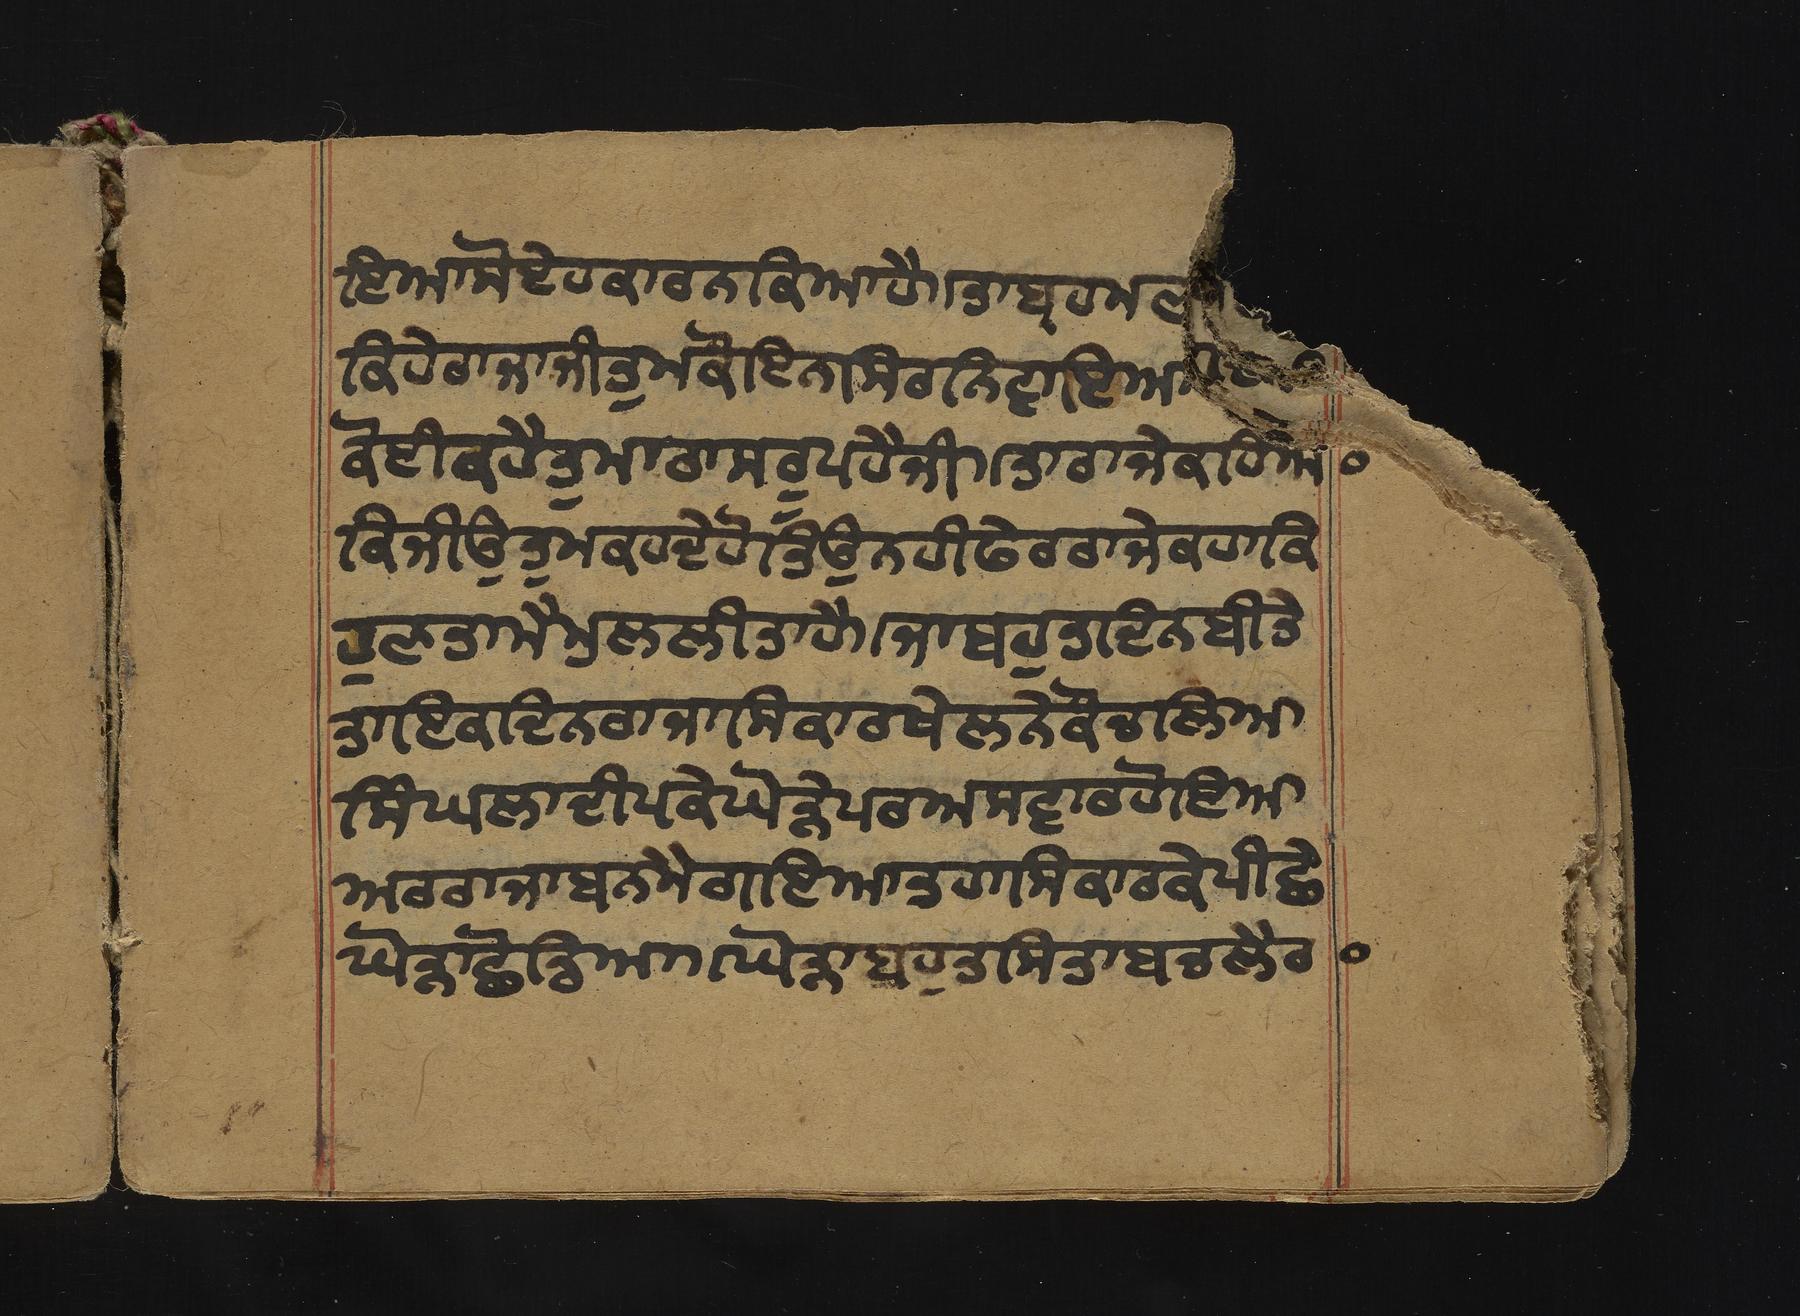 ਇਆਸੋਏਹਕਾਰਨਕਿਆਹੈ।ਤਾਬ੍ਰਹਮਣ
ਕਿਹੇਰਾਜਾਜੀਤੁਮਕੌਇਨਸਿਰਨਿਵਾਇਆ
ਕੋਈਕਹੈਤੁਮਾਰਾਸਰੂਪਹੈਜੀ।ਤਾਰਾਜੇਕਹਿਆ੦
ਕਿਜੀਉਤੁਮਕਹਦੇਹੋਤਿਉਨਹੀਫੇਰਰਾਜੇਕਹਾਕਿ
ਹੁਣਤਾਮੈਮੁਲਲੀਤਾਹੈ।ਜਾਬਹੁਤਦਿਨਬੀਤੇ
ਤਾਇਕਦਿਨਰਾਜਾਸਿਕਾਰਖੇਲਨੇਕੌਚਲਿਆ
ਸਿੰਘਲਾਦੀਪਕੇਘੋੜੇਪਰਅਸਵਾਰਹੋਇਆ
ਅਰਰਾਜਾਬਨਮੇਗਇਆਤਹਾਸਿਕਾਰਕੇਪੀਛੇ
ਘੋੜਾਛੋੜਿਆ।ਘੋੜਾਬਹੁਤਸਿਤਾਬਚਲੈਰ੦